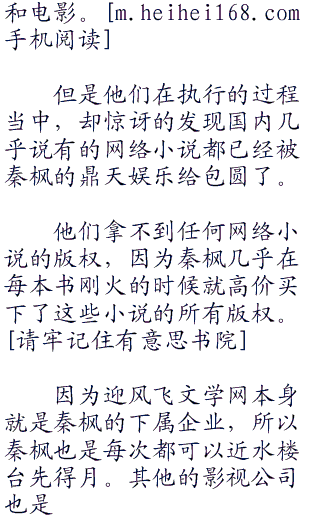 和电影。[m.heihei168.com
手机阅读]
但是他们在执行的过程
当中，却惊讶的发现国内几
乎说有的网络小说都已经被
秦枫的鼎天娱乐给包圆了。
他们拿不到任何网络小
说的版权，因为秦枫几乎在
每本书刚火的时候就高价买
下了这些小说的所有版权。
[请牢记住有意思书院]
因为迎风飞文学网本身
就是秦枫的下属企业，所以
秦枫也是每次都可以近水楼
台先得月。其他的影视公司
也是